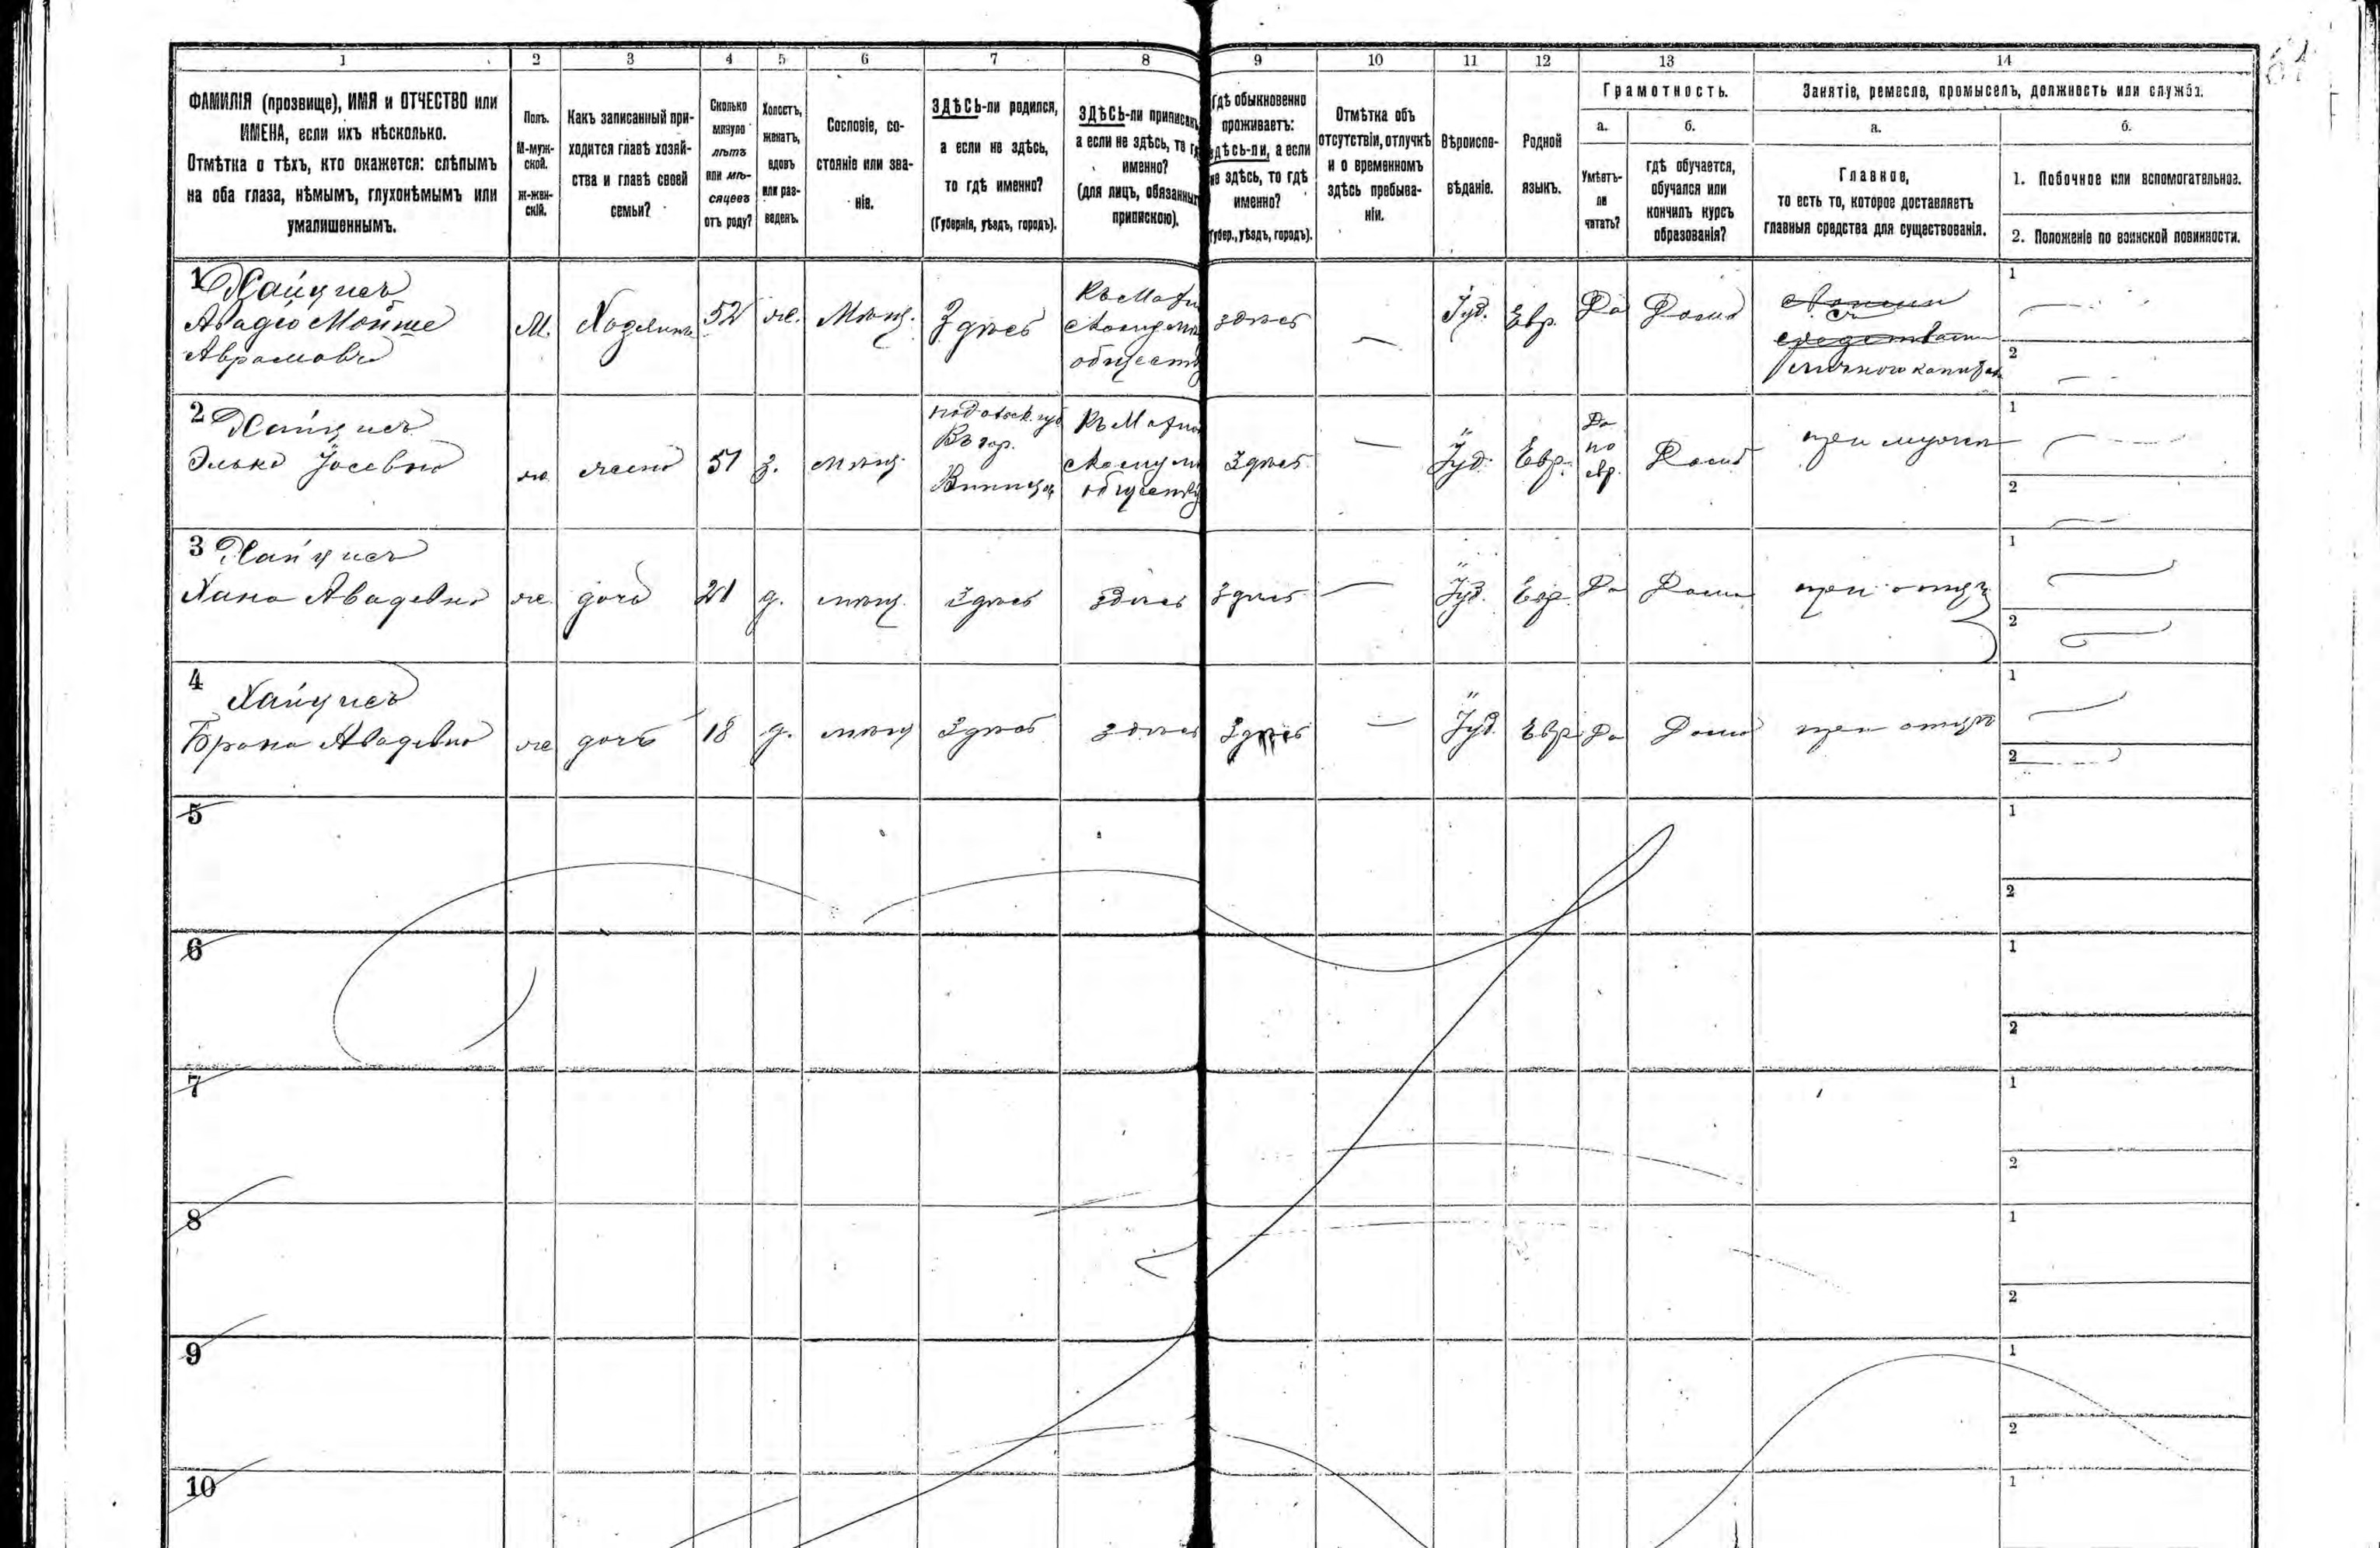 1 2 3 4 5 6 7 8 9 10 11 12 13 14
ФАМИЛІЯ (прозвище), ИМЯ и ОТЧЕСТВО или
ИМЕНА, если ихъ нѣсколько.
Отмѣтка о тѣхъ, кто окажется: слѣпымъ
на оба глаза, нѣмымъ, глухонѣмымъ или
умалишеннымъ.
Полъ.
М-муж-
ской.
Ж-жен-
скій.
Какъ записанный при-
ходится главѣ хозяй-
ства и главѣ своей
семьи?
Сколько
минуло
лѣтъ
или мѣ-
сяцевъ
отъ роду?
Холостъ,
женатъ,
вдовъ
или раз-
веденъ.
Сословіе, со-
стояніе или зва-
ніе.
ЗДѢСЬ-ли родился,
а если не здѣсь,
то гдѣ именно?
(Губернія, уѣздъ, городъ).
ЗДѢСЬ-ли приписанъ,
а если не здѣсь, то гдѣ
именно?
(для лицъ, обязанныхъ
припискою).
Гдѣ обыкновенно
проживаетъ:
здѣсь-ли, а если
не здѣсь, то гдѣ
именно?
(Губер., уѣздъ, городъ).
Отмѣтка объ
отсутствіи, отлучкѣ
и о временномъ
здѣсь пребыва-
ніи.
Вѣроиспо-
вѣданіе.
Родной
языкъ.
Грамотность.
а.
Умѣетъ-
ли
читать?
б.
гдѣ обучается,
обучался или
кончилъ курсъ
образованія?
Занятіе, ремесло, промыселъ, должность или служба.
а.
Главное,
то есть то, которое доставляетъ
главныя средства для существованія.
б.
1. Побочное или вспомогательное.
2. Положеніе по воинской повинности.
1 Хайцисъ
Авадіо Мойше
Аврамовъ
М. Хозяинъ 52 же. Мѣщ. Здѣсь
общест
здѣсь — Іуд. Евр. Да Дома
1
2
2 Хайцисъ
Элька Іосевна
ж. жена 51 з. мѣщ.
Подольск. губ
Въ гор.
Винница
обществу
Здѣсь — Іуд. Евр.
Да
по
евр.
Дома при мужѣ
1
2
3 Хайцисъ
Хана Авадевна ж. дочь 21 д. мѣщ. Здѣсь здѣсь здѣсь — Іуд. Евр. Да Дома при отцѣ
1
2
4 Хайцисъ
Брана Авадевна ж. дочь 18 д. мѣщ Здѣсь здѣсь Здѣсь — Іуд. Евр Да Дома при отцѣ
1
2
5
1
2
6
1
2
7
1
2
8
1
2
9
1
2
10
1